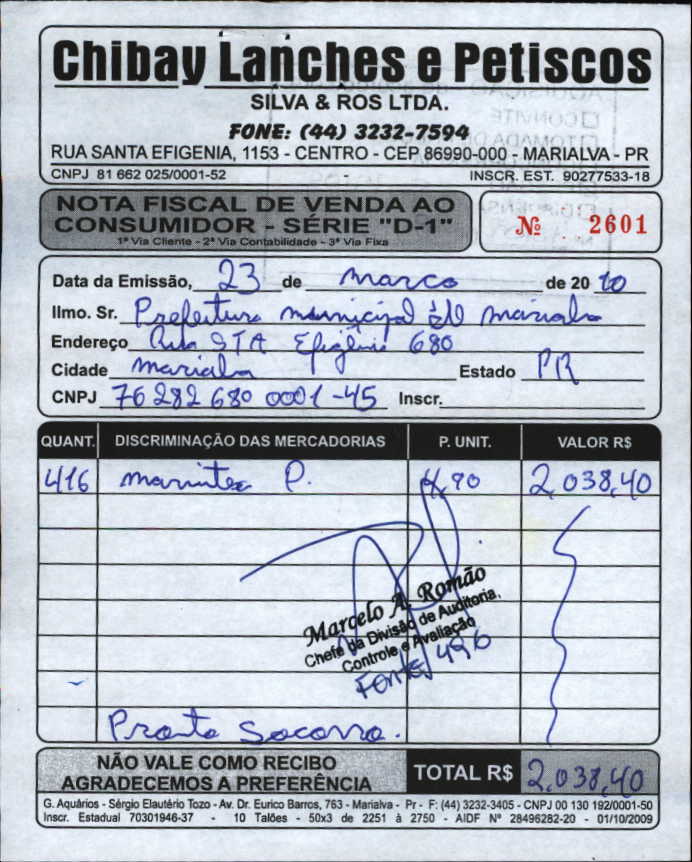 Chibay Lanches e Petiscos
SILVA & ROS LTDA.
FONE: (44) 3232-7594
RUA SANTA EFIGENIA, 1153 - CENTRO - CEP 86990-000 - MARIALVA - PR
CNPJ 81 662 025/0001-52 INSCR. EST. 90277533-18
NOTA FISCAL DE VENDA AO
CONSUMIDOR - SÉRIE "D-1"
1ª Via Cliente - 2ª Via Contabilidade - 3ª Via Fixa
Nº 2601
Data da Emissão, 23 de março de 20 10
Ilmo. Sr. Prefeitura municipal de marialva
Endereço Rua STA Efigênia 680
Cidade marialva Estado PR
CNPJ 76 282 680 0001-45 Inscr.
QUANT. DISCRIMINAÇÃO DAS MERCADORIAS P. UNIT. VALOR R$
416 marmitex P. 4,90 2,038,40
Marcelo A. Romão
Chefe da Divisão de Auditoria,
Controle e Avaliação
Fonte 496
Pronto Socorro.
NÃO VALE COMO RECIBO
AGRADECEMOS A PREFERÊNCIA
TOTAL R$ 2,038,40
G. Aquários - Sérgio Elautério Tozo - Av. Dr. Eurico Barros, 763 - Marialva - Pr - F: (44) 3232-3405 - CNPJ 00 130 192/0001-50
Inscr. Estadual 70301946-37 - 10 Talões - 50x3 de 2251 à 2750 - AIDF Nº 28496282-20 - 01/10/2009